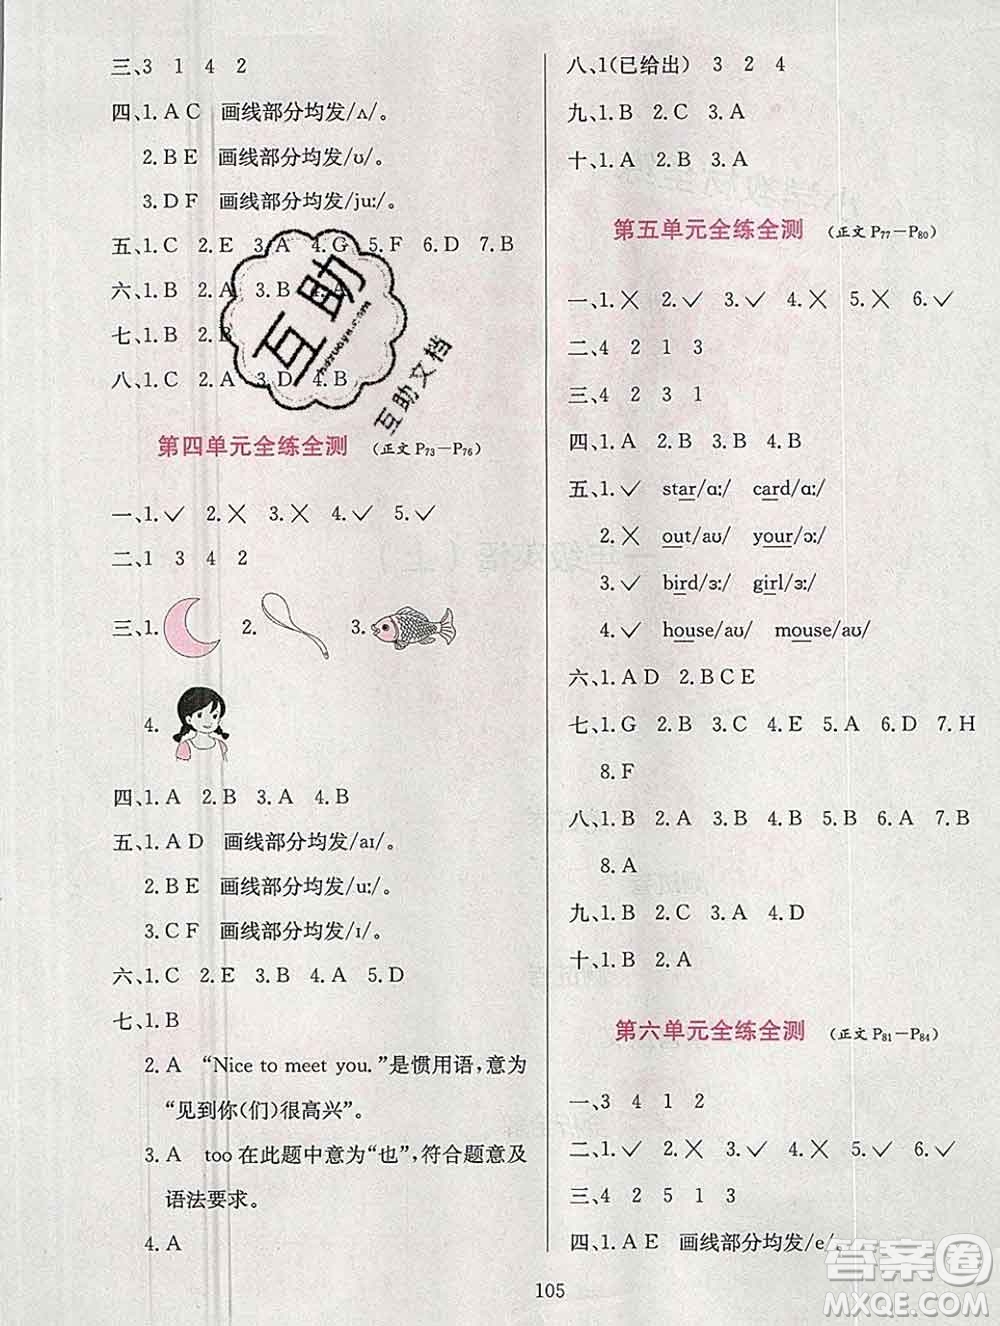 三、3 1 4 2
四、1. A C 画线部分均发/ʌ/。
2. B E 画线部分均发/ʊ/。
3. D F 画线部分均发/juː/。
五、1. C 2. E 3. A 4. G 5. F 6. D 7. B
六、1. B 2. A 3. B 4. A
七、1. B 2. B
八、1. C 2. A 3. D 4. B
第四单元全练全测 (正文 P73—P76)
一、1. ✓ 2. ✗ 3. ✗ 4. ✓ 5. ✓
二、1 3 4 2
三、1. 2. 3.
4.
四、1. A 2. B 3. A 4. B
五、1. A D 画线部分均发/aɪ/。
2. B E 画线部分均发/uː/。
3. C F 画线部分均发/ɪ/。
六、1. C 2. E 3. B 4. A 5. D
七、1. B
2. A “Nice to meet you.”是惯用语,意为
“见到你(们)很高兴”。
3. A too在此题中意为“也”,符合题意及
语法要求。
4. A
八、1(已给出) 3 2 4
九、1. B 2. C 3. A
十、1. A 2. B 3. A
第五单元全练全测 (正文 P77—P80)
一、1. ✗ 2. ✓ 3. ✓ 4. ✗ 5. ✗ 6. ✓
二、4 2 1 3
三、4 2 3 1
四、1. A 2. B 3. A 4. B
五、1. ✓ star/ɑː/ card/ɑː/
2. ✗ out/aʊ/ your/ɔː/
3. ✓ bird/ɜː/ girl/ɜː/
4. ✓ house/aʊ/ mouse/aʊ/
六、1. A D 2. B C E
七、1. G 2. B 3. C 4. E 5. A 6. D 7. H
8. F
八、1. B 2. A 3. B 4. B 5. A 6. A 7. B
8. A
九、1. B 2. C 3. A 4. D
十、1. B 2. A
第六单元全练全测 (正文 P81—P84)
一、3 4 1 2
二、1. ✓ 2. ✗ 3. ✓ 4. ✗ 5. ✓ 6. ✓
三、4 2 5 1 3
四、1. A E 画线部分均发/e/。
105
互助
hdzuoye.com
互助文档
答案圈
MXQE.COM